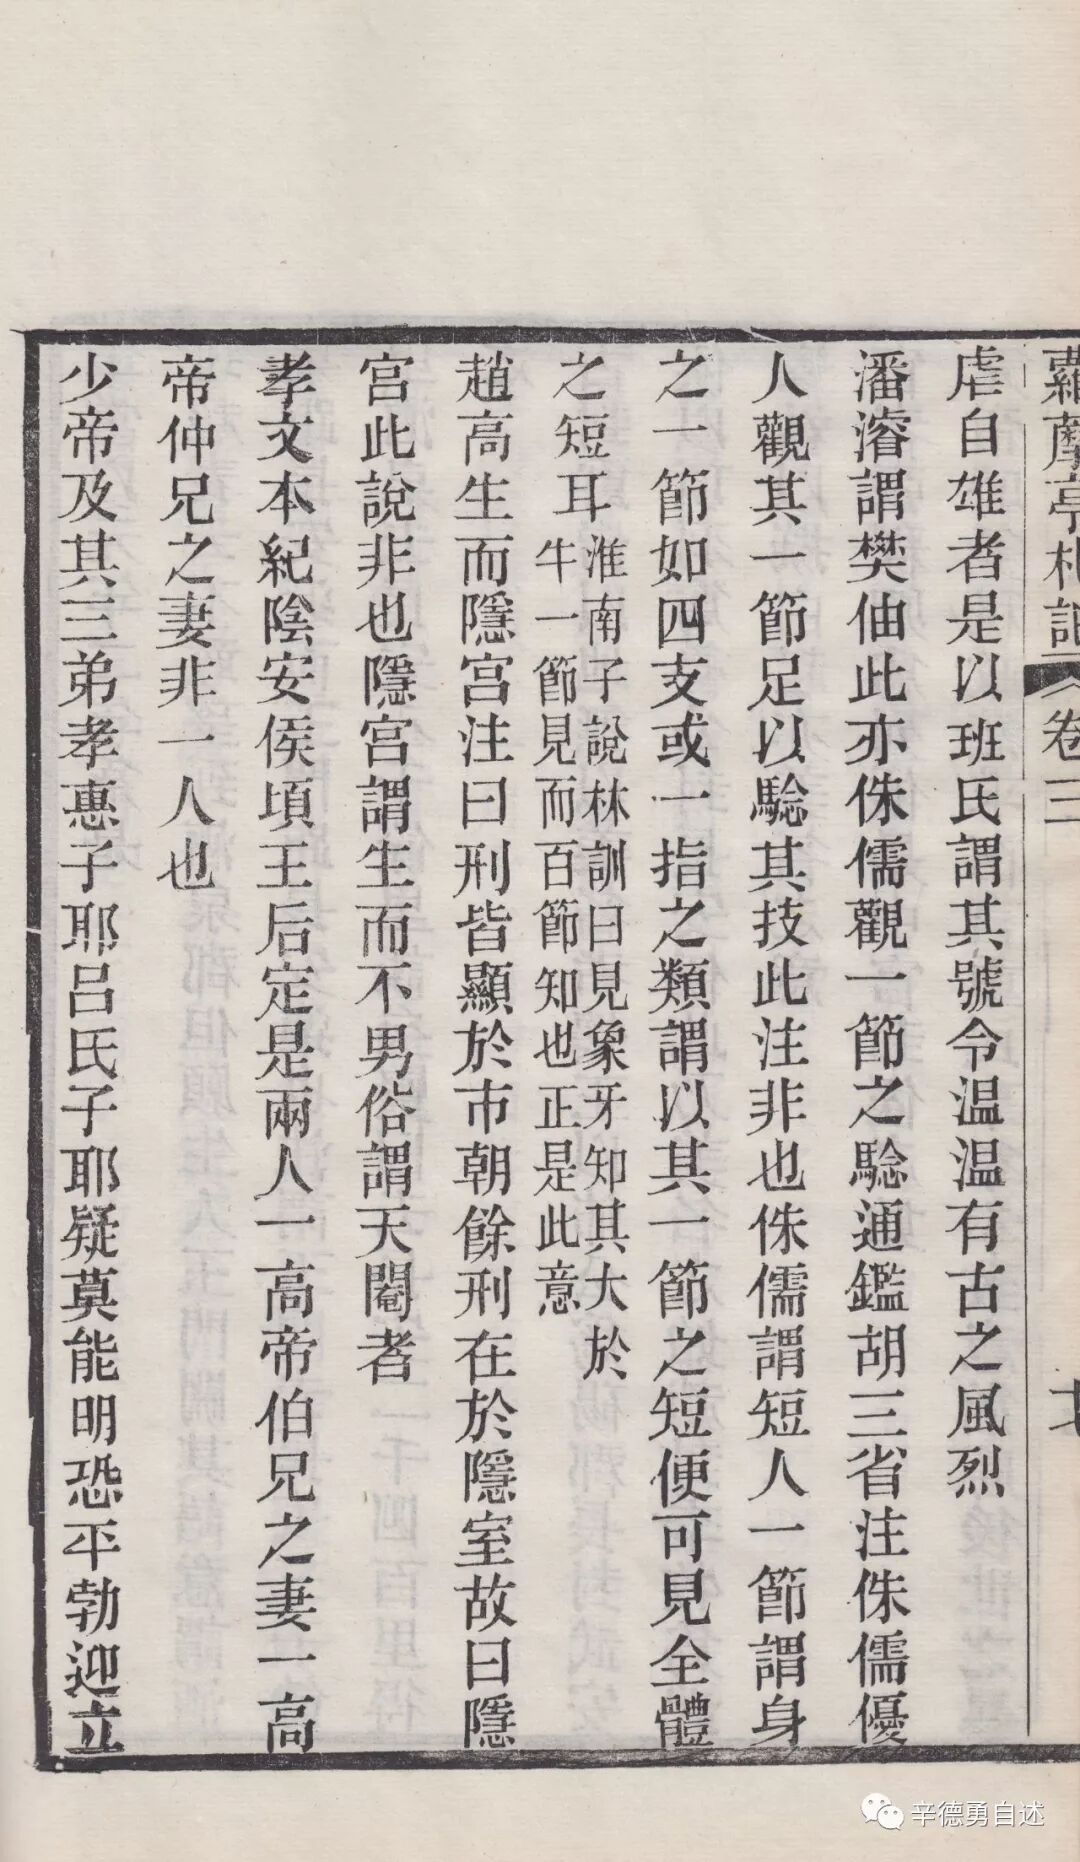 蘿藦亭札記 卷三
虐自雄者是以班氏謂其號令温温有古之風烈
潘濬謂樊伷此亦侏儒觀一節之驗通鑑胡三省注侏儒優
人觀其一節足以驗其技此注非也侏儒謂短人一節謂身
之一節如四支或一指之類謂以其一節之短便可見全體
之短耳
淮南子說林訓曰見象牙知其大於
牛一節見而百節知也正是此意
趙高生而隱宫注曰刑皆顯於市朝餘刑在於隱室故曰隱
宫此說非也隱宫謂生而不男俗謂天閹者
孝文本紀陰安侯頃王后定是兩人一高帝伯兄之妻一高
帝仲兄之妻非一人也
少帝及其三弟孝惠子耶呂氏子耶疑莫能明恐平勃迎立
辛德勇自述